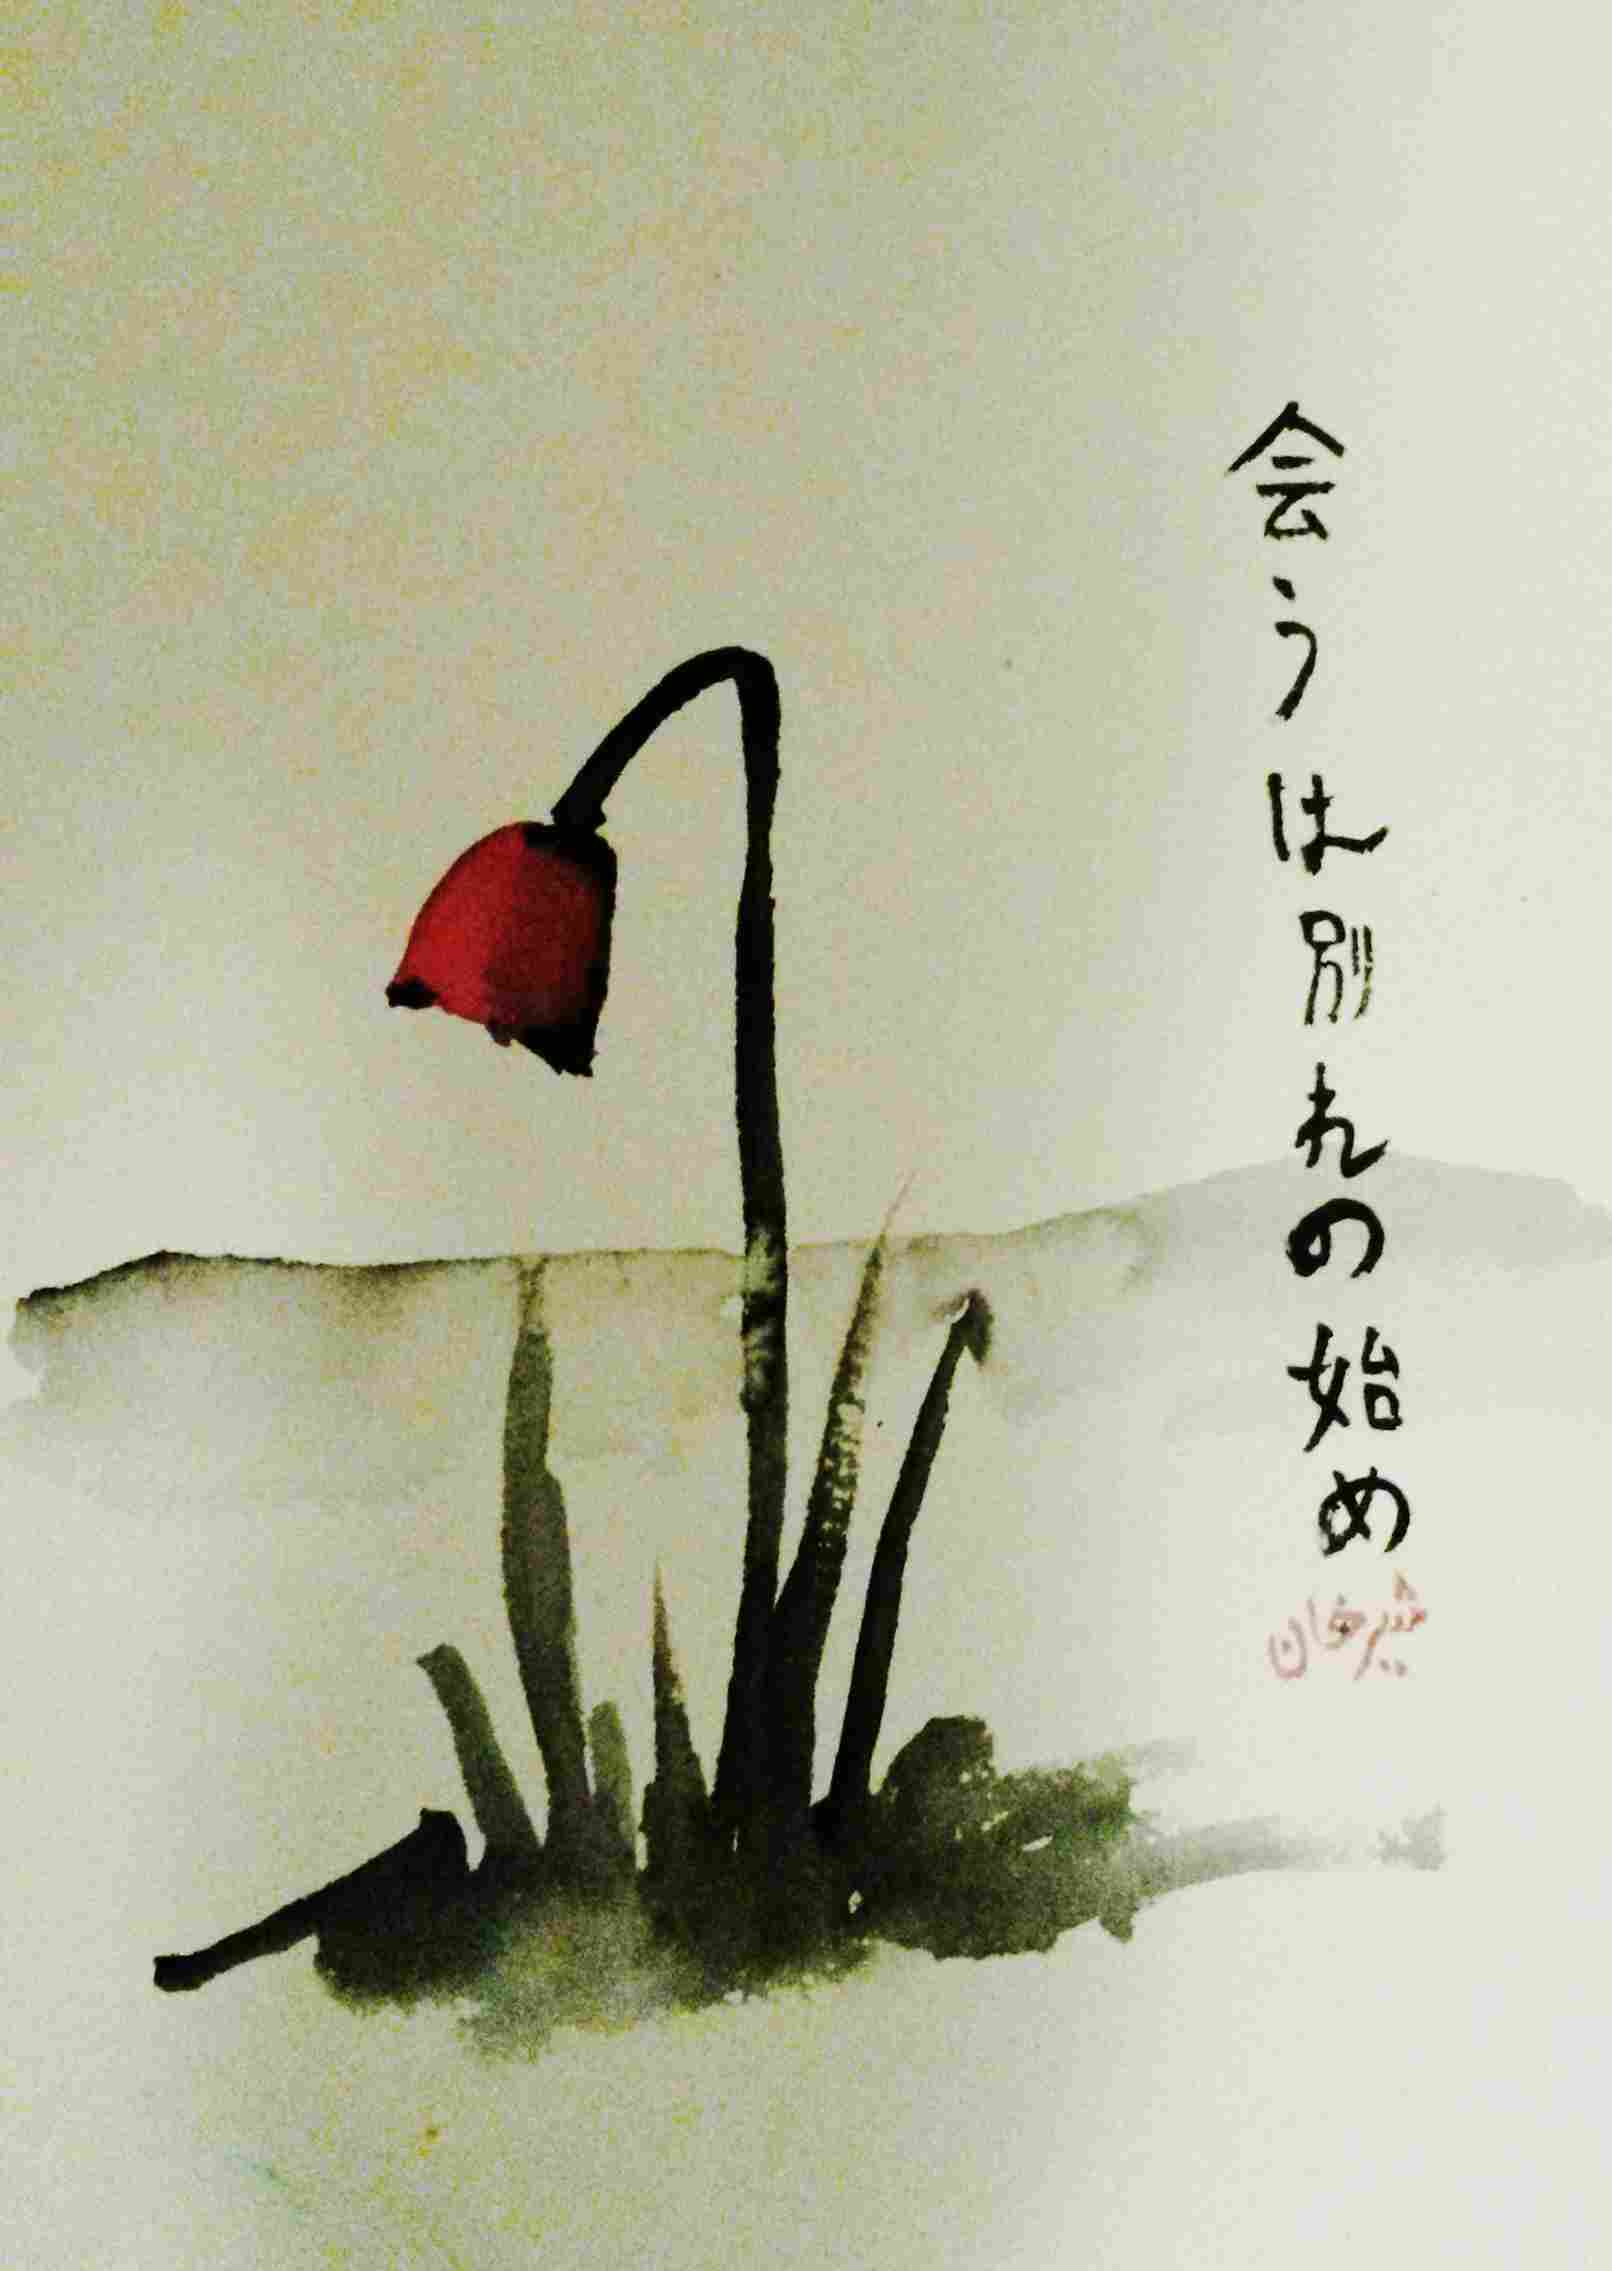 会うは別れの始め
شیرخان